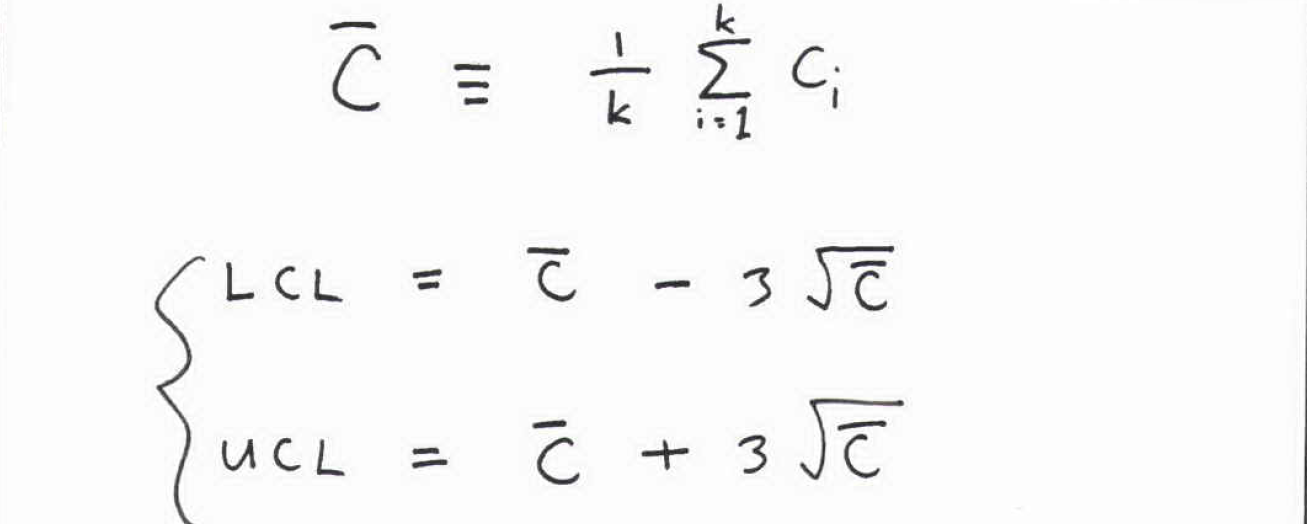 C̄ ≡ 1/k ∑_{i=1}^{k} C_i
LCL = C̄ - 3 √C̄
UCL = C̄ + 3 √C̄